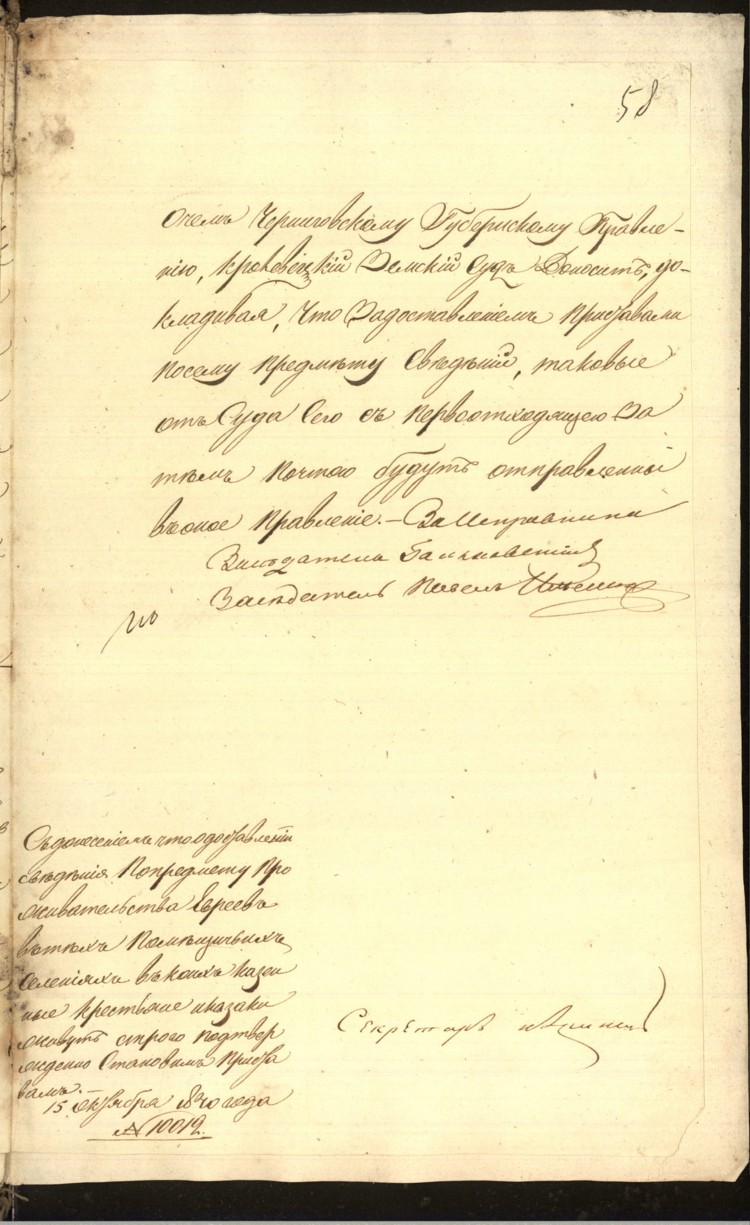 58
очемъ Черниговскому Губернскому Правле-
нію, кролевецкій Земскій Судъ Доноситъ, до-
кладывая, что Задоставленіемъ Приставами
посему предмѣту Свѣдѣній, таковые
отъ Суда Сего съ первоотходящею За
тѣмъ почтою будутъ отправленны
въоное Правленіе.— За Исправника
Засѣдатель
Засѣдатель Павелъ
Съдонесеніемъ что одоставленіи
свѣдѣнія Попредмету Про
живательства Евреевъ
втѣхъ Помѣщичьихъ
Селеніяхъ вкоихъ казен
ные крестьяне иказаки
живутъ строго подтвер
жденно Становымъ Приста
вамъ.—
15 октября 1840 года
№ 10012.
Секретарь